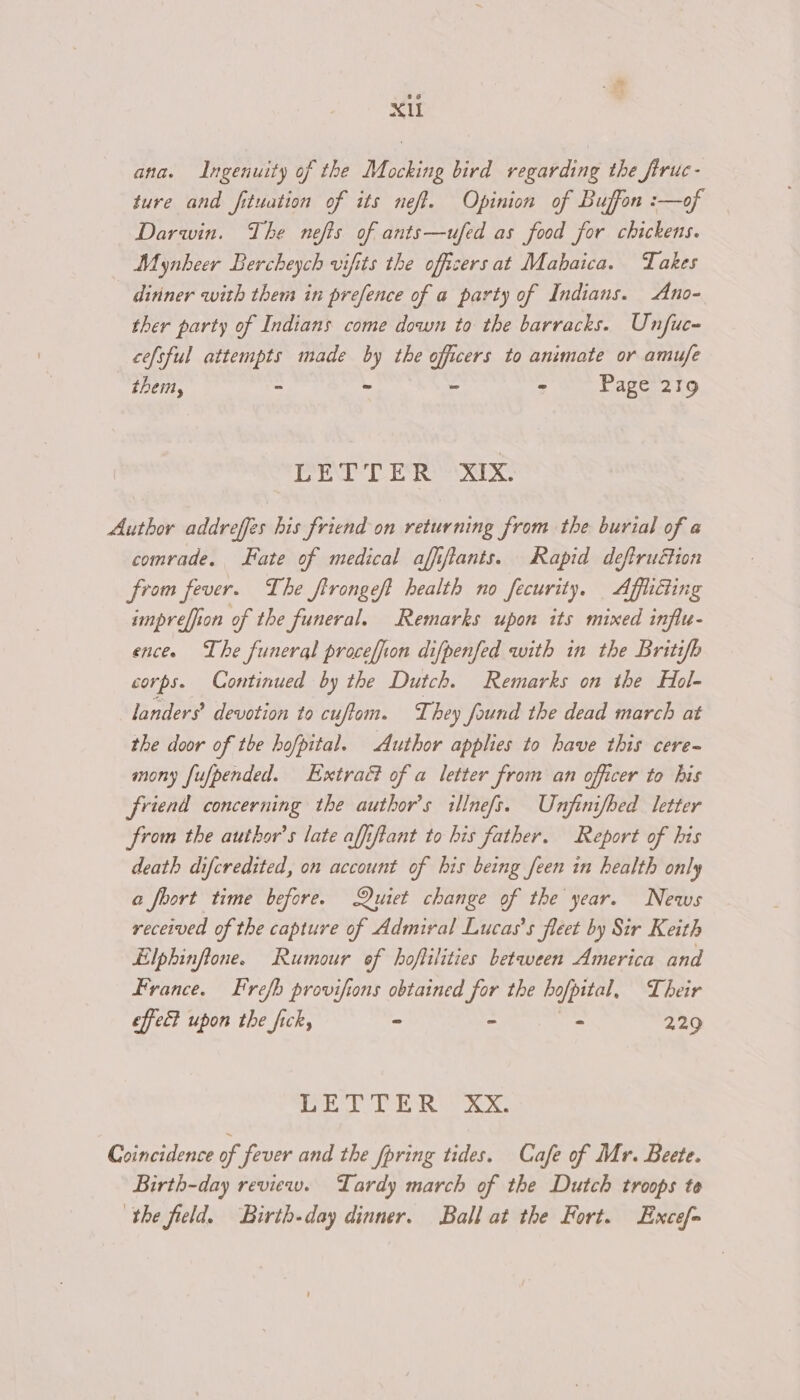 xii
ana. Ingenuity of the Mocking bird regarding the ſtruc-
ture and ſituation of its neſt. Opinion of Buffon :—of
Darwin. The neſts of ants—uſed as food for chickens.
Mynheer Bercheych viſits the officers at Mahaica. Takes
dinner with them in preſence of a party of Indians. Ano-
ther party of Indians come down to the barracks. Unſuc-
ceſsful attempts made by the officers to animate or amuſe
them, - - - - Page 219
LETTER XIX.
Author addreſſes his friend on returning from the burial of a
comrade. Fate of medical aſſiſtants. Rapid deſtruction
from fever. The ſtrongeſt health no ſecurity. Afflicting
impreſſion of the funeral. Remarks upon its mixed influ-
ence. The funeral proceſſion diſpenſed with in the Britiſh
corps. Continued by the Dutch. Remarks on the Hol-
landers' devotion to cuſtom. They found the dead march at
the door of the hoſpital. Author applies to have this cere-
mony ſuſpended. Extract of a letter from an officer to his
friend concerning the author's illneſs. Unfiniſhed letter
from the author's late aſſiſtant to his father. Report of his
death diſcredited, on account of his being ſeen in health only
a ſhort time before. Quiet change of the year. News
received of the capture of Admiral Lucas's fleet by Sir Keith
Elphinſtone. Rumour of hoſtilities between America and
France. Freſh proviſions obtained for the hoſpital. Their
effect upon the ſick, - - - 229
LETTER XX.
Coincidence of fever and the ſpring tides. Cafe of Mr. Beete.
Birth-day review. Tardy march of the Dutch troops to
the field. Birth-day dinner. Ball at the Fort. Exceſ-